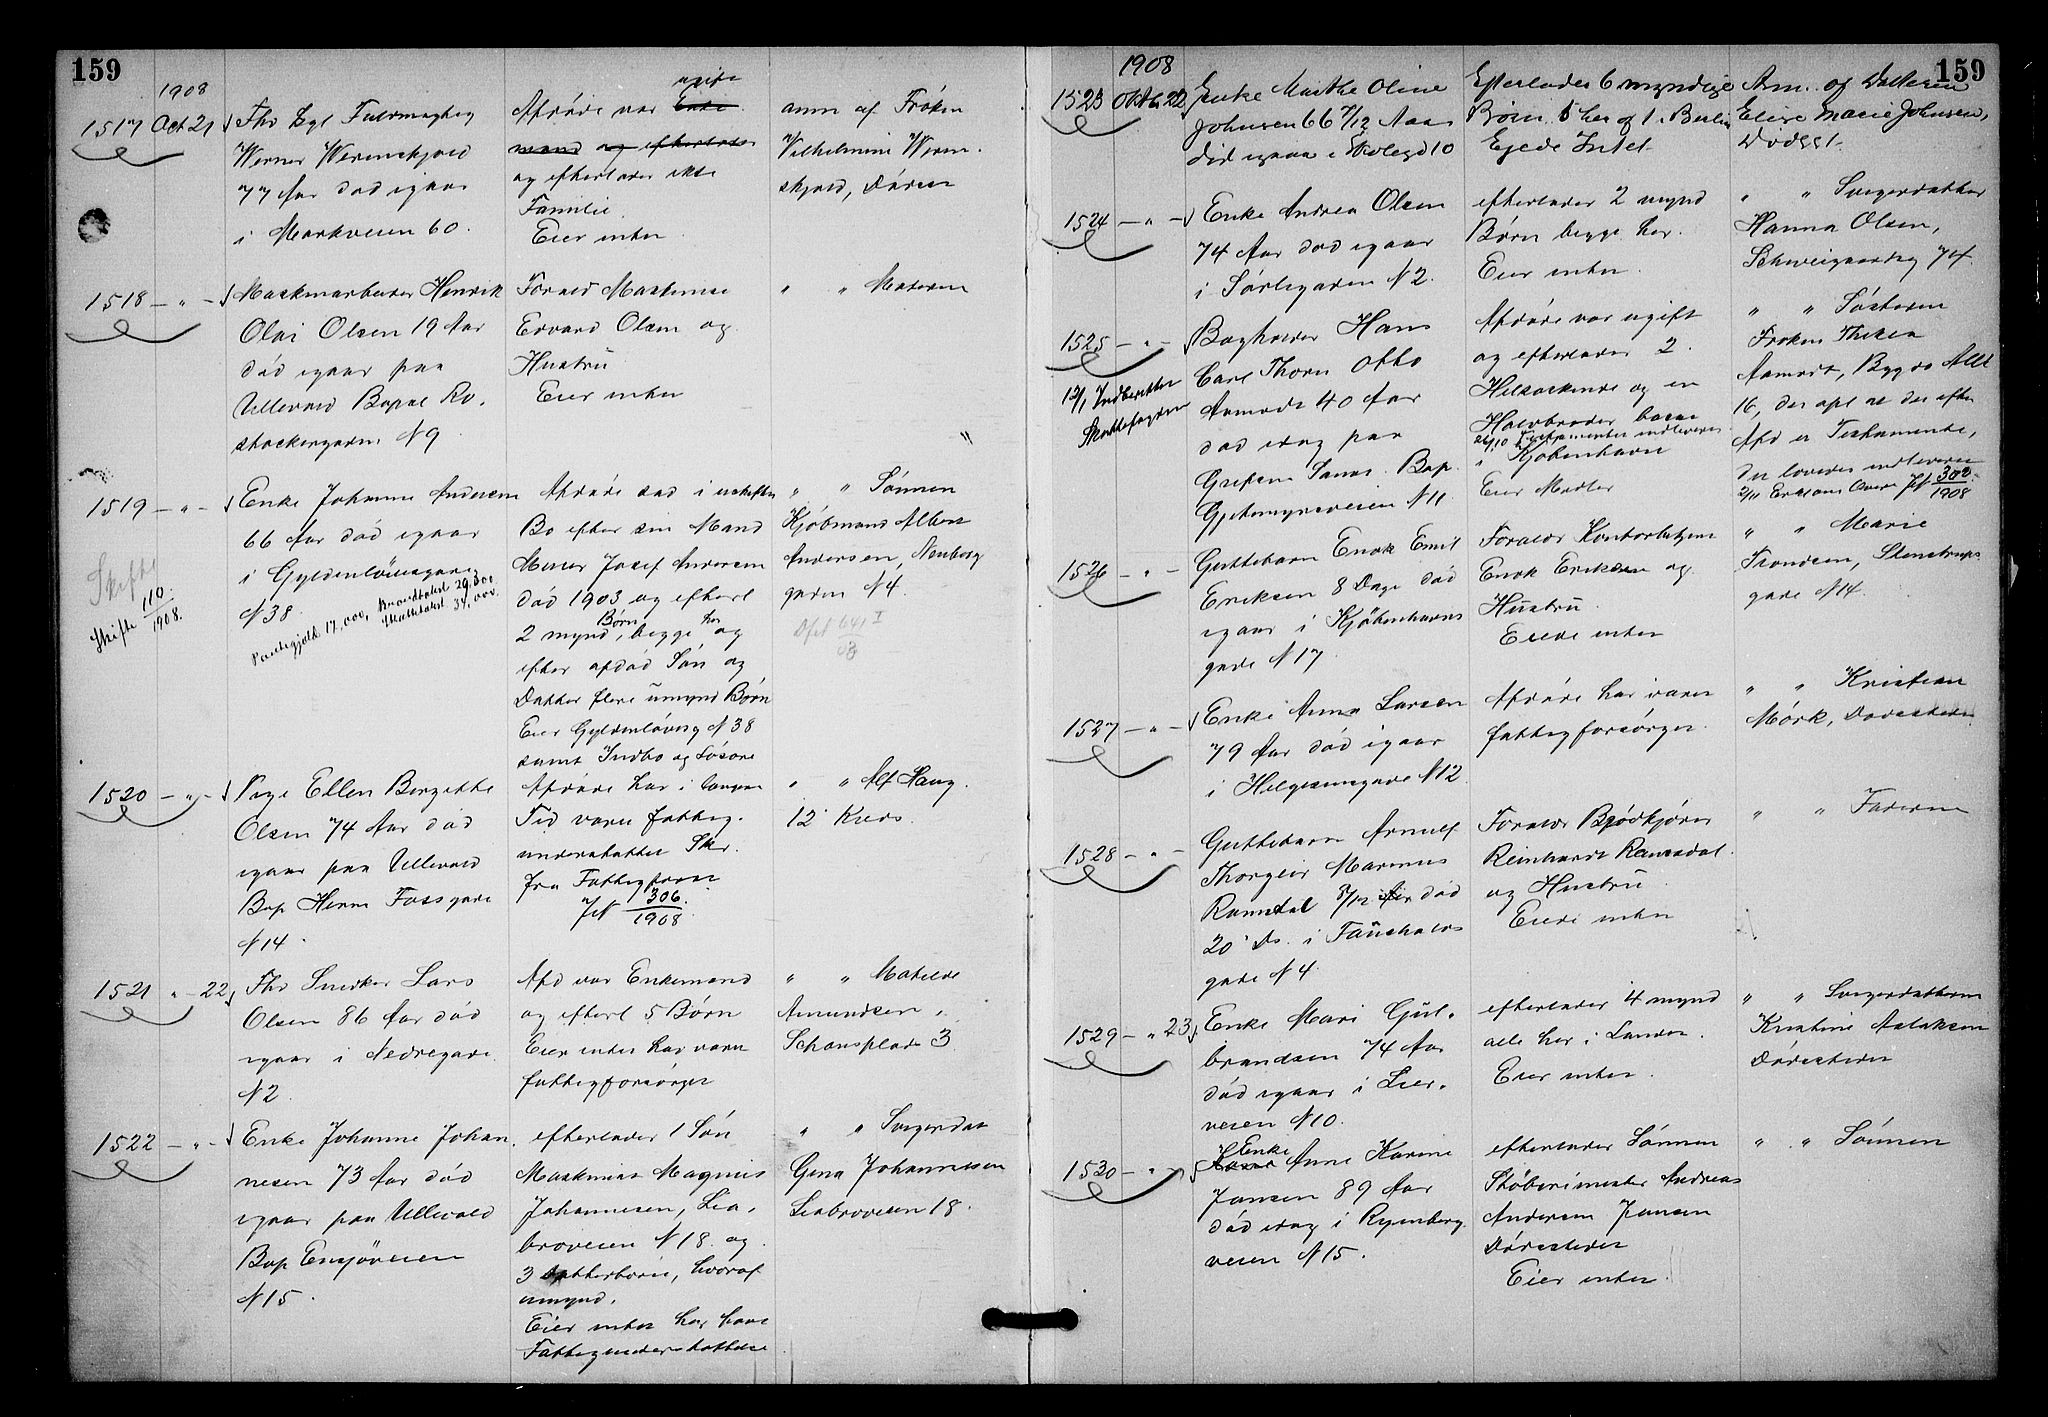 159
1908
1517 Oct 21 Fhv Byf Fuldmægtig
Werner Werenskjold
77 Aar død igaar
i Markveien 60.
Afdøde var ugift
og efterlader ikke
Familie.
Eier intet
anm af Frøken
Vilhelmine Weren-
skjold, Dødsst
1518 - " - Maskinarbeider Henrik
Olai Olsen 19 Aar
død igaar paa
Ullevold Bopæl Ro-
stockergaden N 9
Foræld Maskinist
Edvard Olsen og
Hustru
Eier intet
" " Moderen
1519 - " - Enke Johanne Andersen
66 Aar død igaar
i Gyldenløvesgade
N 38.
Skifte
Skifte 110/1908.
Pantegjæld 17,000, Brandtakst 29,300
Skattetakst 34,000.
Afdøde sad i uskiftet
Bo efter sin Mand
Murer Josef Andersen
død 1903 og efterl
2 mynd Børn, begge her og
efter afdød Søn og
Datter flere umynd Børn
Eier Gyldenløvesg N 38
samt Indbo og Løsøre
" " Sønnen
Kjøbmand Albert
Andersen, Neuberg
gaden N 4.
1520 - " - Pige Ellen Birgitte
Olsen 74 Aar død
igaar paa Ullevold
Bop Herm Fossgade
N 14.
Afdøde har i længere
Tid været fattig-
understøttet Skr.
fra Fattigv
JN 306/1908.
" " Alf Haug.
12 Kreds.
1521 " - 22 Fhv Snedker Lars
Olsen 86 Aar død
igaar i Nedregade
N 2
Afd var Enkemand
og efterl 5 Børn
Eier intet har været
fattigforsørget
" " Matilde
Amundsen,
Schousplads 3
1522 - " - Enke Johanne Johan
nesen 73 Aar død
igaar paa Ullevold
Bop Ensjøveien
N 15.
efterlader 1 Søn
Maskinist Magnus
Johannesen, Lia-
broveien N 18 og
3 Datterbørn, hvoraf
umynd.
Eier intet har havt
Fattigunderstøttelse
" " Svigerdat
Gina Johannesen
Liabroveien 18.
159
1908
1523 Oktb 22 Enke Marthe Oline
Johnsen 66 7/12 Aar
död igaar i Stolegd 10
Efterlader 6 myndige
Börn 5 her og 1 i Berlin
Ejede Intet
Anm. af Datteren
Elise Marie Johnsen,
Dødsst.
1524 - " - Enke Andrea Olsen
74 Aar død igaar
i Sørligaden N 2.
efterlader 2 mynd
Børn begge her.
Eier intet.
" " Svigerdatter
Hanna Olsen,
Schweigaardsg 74.
1525 - " - Bogholder Hans
Carl Thorn Otto
Aamodt 40 Aar
død idag paa
Grefsen Sanat. Bop.
Gjetemyrsveien N 11
12/1 Indberettet
Skattefogden
Afdøde var ugift
og efterlader 2
Helsøskende og en
Halvbroder bosat
26/10 Testamentet indleveres
i Kjøbenhavn
Eier Midler
" " Søsteren
Frøken Thesea
Aamodt, Bygdø Allé
16, der opl at der efter
Afd er Testamente,
der loves indleveret
JN 302/1908.
1526 - " - Guttebarn Enok Emil
Eriksen 8 Dage død
igaar i Kjøbenhavns
gade N 17.
Foræld Kontorbetjent
Enok Eriksen og
Hustru.
Eiede intet
" " Marie
Trondsen, Stenstrups
gade N 14.
1527 - " - Enke Anna Larsen
79 Aar død igaar
i Helgesensgade N 12.
Afdøde har været
fattigforsørget.
" " Kristian
Mørk, Dødsstedet
1528 - " - Guttebarn Arnulf
Thorgeir Marinus
Ramsdal 5/12 Aar død
20 ds. i Fauchalds
gade N 4.
Foræld Brødkjører
Reinhardt Ramsdal
og Hustru.
Eiede intet
" " Faderen
1529 - " 23 Enke Mari Gul-
brandsen 74 Aar
død igaar i Lier-
veien N 10.
efterlader 4 mynd
alle her i Landet.
Eier intet.
" " Svigerdatteren
Kristine Aslaksen
Dødsstedet
1530 - " - Enke Anne Karine
Jansen 89 Aar
død idag i Ryenberg
veien N 15.
efterlader Sønnen
Støberimester Andreas
Andersen Jansen
Dødsstedet
Eier intet.
" " Sønnen